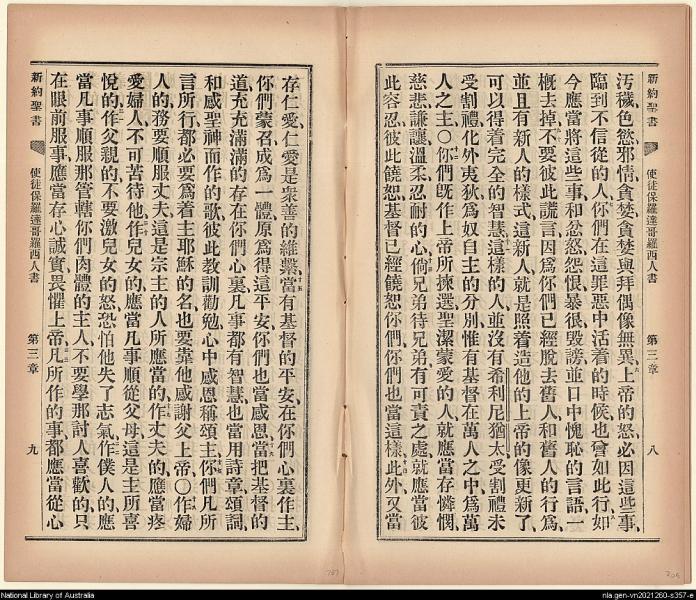 新約聖書 使徒保羅達哥羅西人書 第三章 八
汚穢、色慾、邪情、貪婪、貪婪與拜偶像無異、上帝的怒、必因這些事、
臨到不信從的人、你們在這罪惡中活着的時候、也曾如此行、如
今應當將這些事、和忿怒怨恨暴很毀謗、並口中愧恥的言語、一
概去掉、不要彼此謊言、因為你們已經脫去舊人、和舊人的行為、
並且有新人的樣式、這新人就是照着造他的上帝的像更新了、
可以得着完全的智慧、這樣的人、並沒有希利尼猶太、受割禮未
受割禮、化外夷狄、為奴自主的分別、惟有基督在萬人之中、為萬
人之主、○你們旣作上帝所揀選聖潔蒙愛的人、就應當存憐憫、
慈悲、謙讓、溫柔、忍耐的心、倘兄弟待兄弟、有可責之處、就應當彼
此容忍、彼此饒恕、基督已經饒恕你們、你們也當這樣、此外又當
存仁愛、仁愛是衆善的維繫、當有基督的平安、在你們心裏作主、
你們蒙召成為一體、原為得這平安、你們也當感恩、當把基督的
道、充充滿滿的存在你們心裏、凡事都有智慧、也當用詩章、頌詞、
和感聖神而作的歌、彼此教訓勸勉、心中感恩稱頌主、你們凡所
言所行、都必要為着主耶穌的名、也要靠他感謝父上帝、○作婦
人的、務要順服丈夫、這是宗主的人所應當的、作丈夫的、應當疼
愛婦人、不可苦待他、作兒女的、應當凡事順從父母、這是主所喜
悅的、作父親的、不要激兒女的怒、恐怕他失了志氣、作僕人的、應
當凡事順服那管轄你們肉體的主人、不要學那討人喜歡的、只
在眼前服事、應當存心誠實、畏懼上帝、凡所作的事、都應當從心
新約聖書 使徒保羅達哥羅西人書 第三章 九
National Library of Australia
nla.gen-vn2021260-s357-e